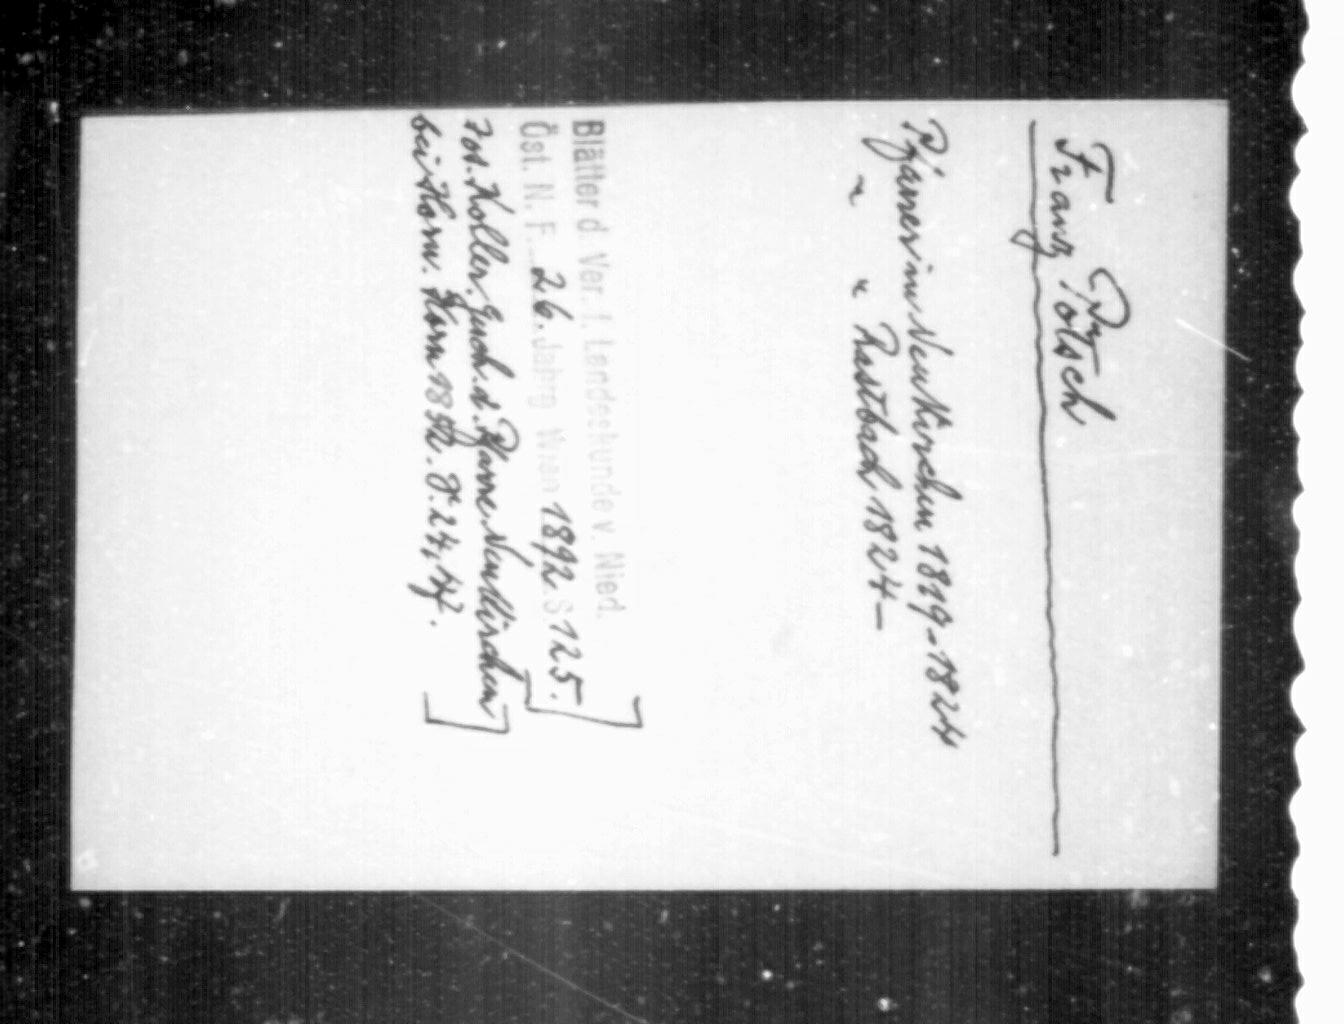 Franz Pötsch
Pfarrer in Neukirchen 1819-1824
" " Rastbach 1824-
Blätter d. Ver. f. Landeskunde v. Nied.
Öst. N. F. 26. Jahrg Wien 1892. S 125.]
Jos. Koller. Gesch. d. Pfarre Neukirchen
bei Horn. Horn 18 . S. 24, ]